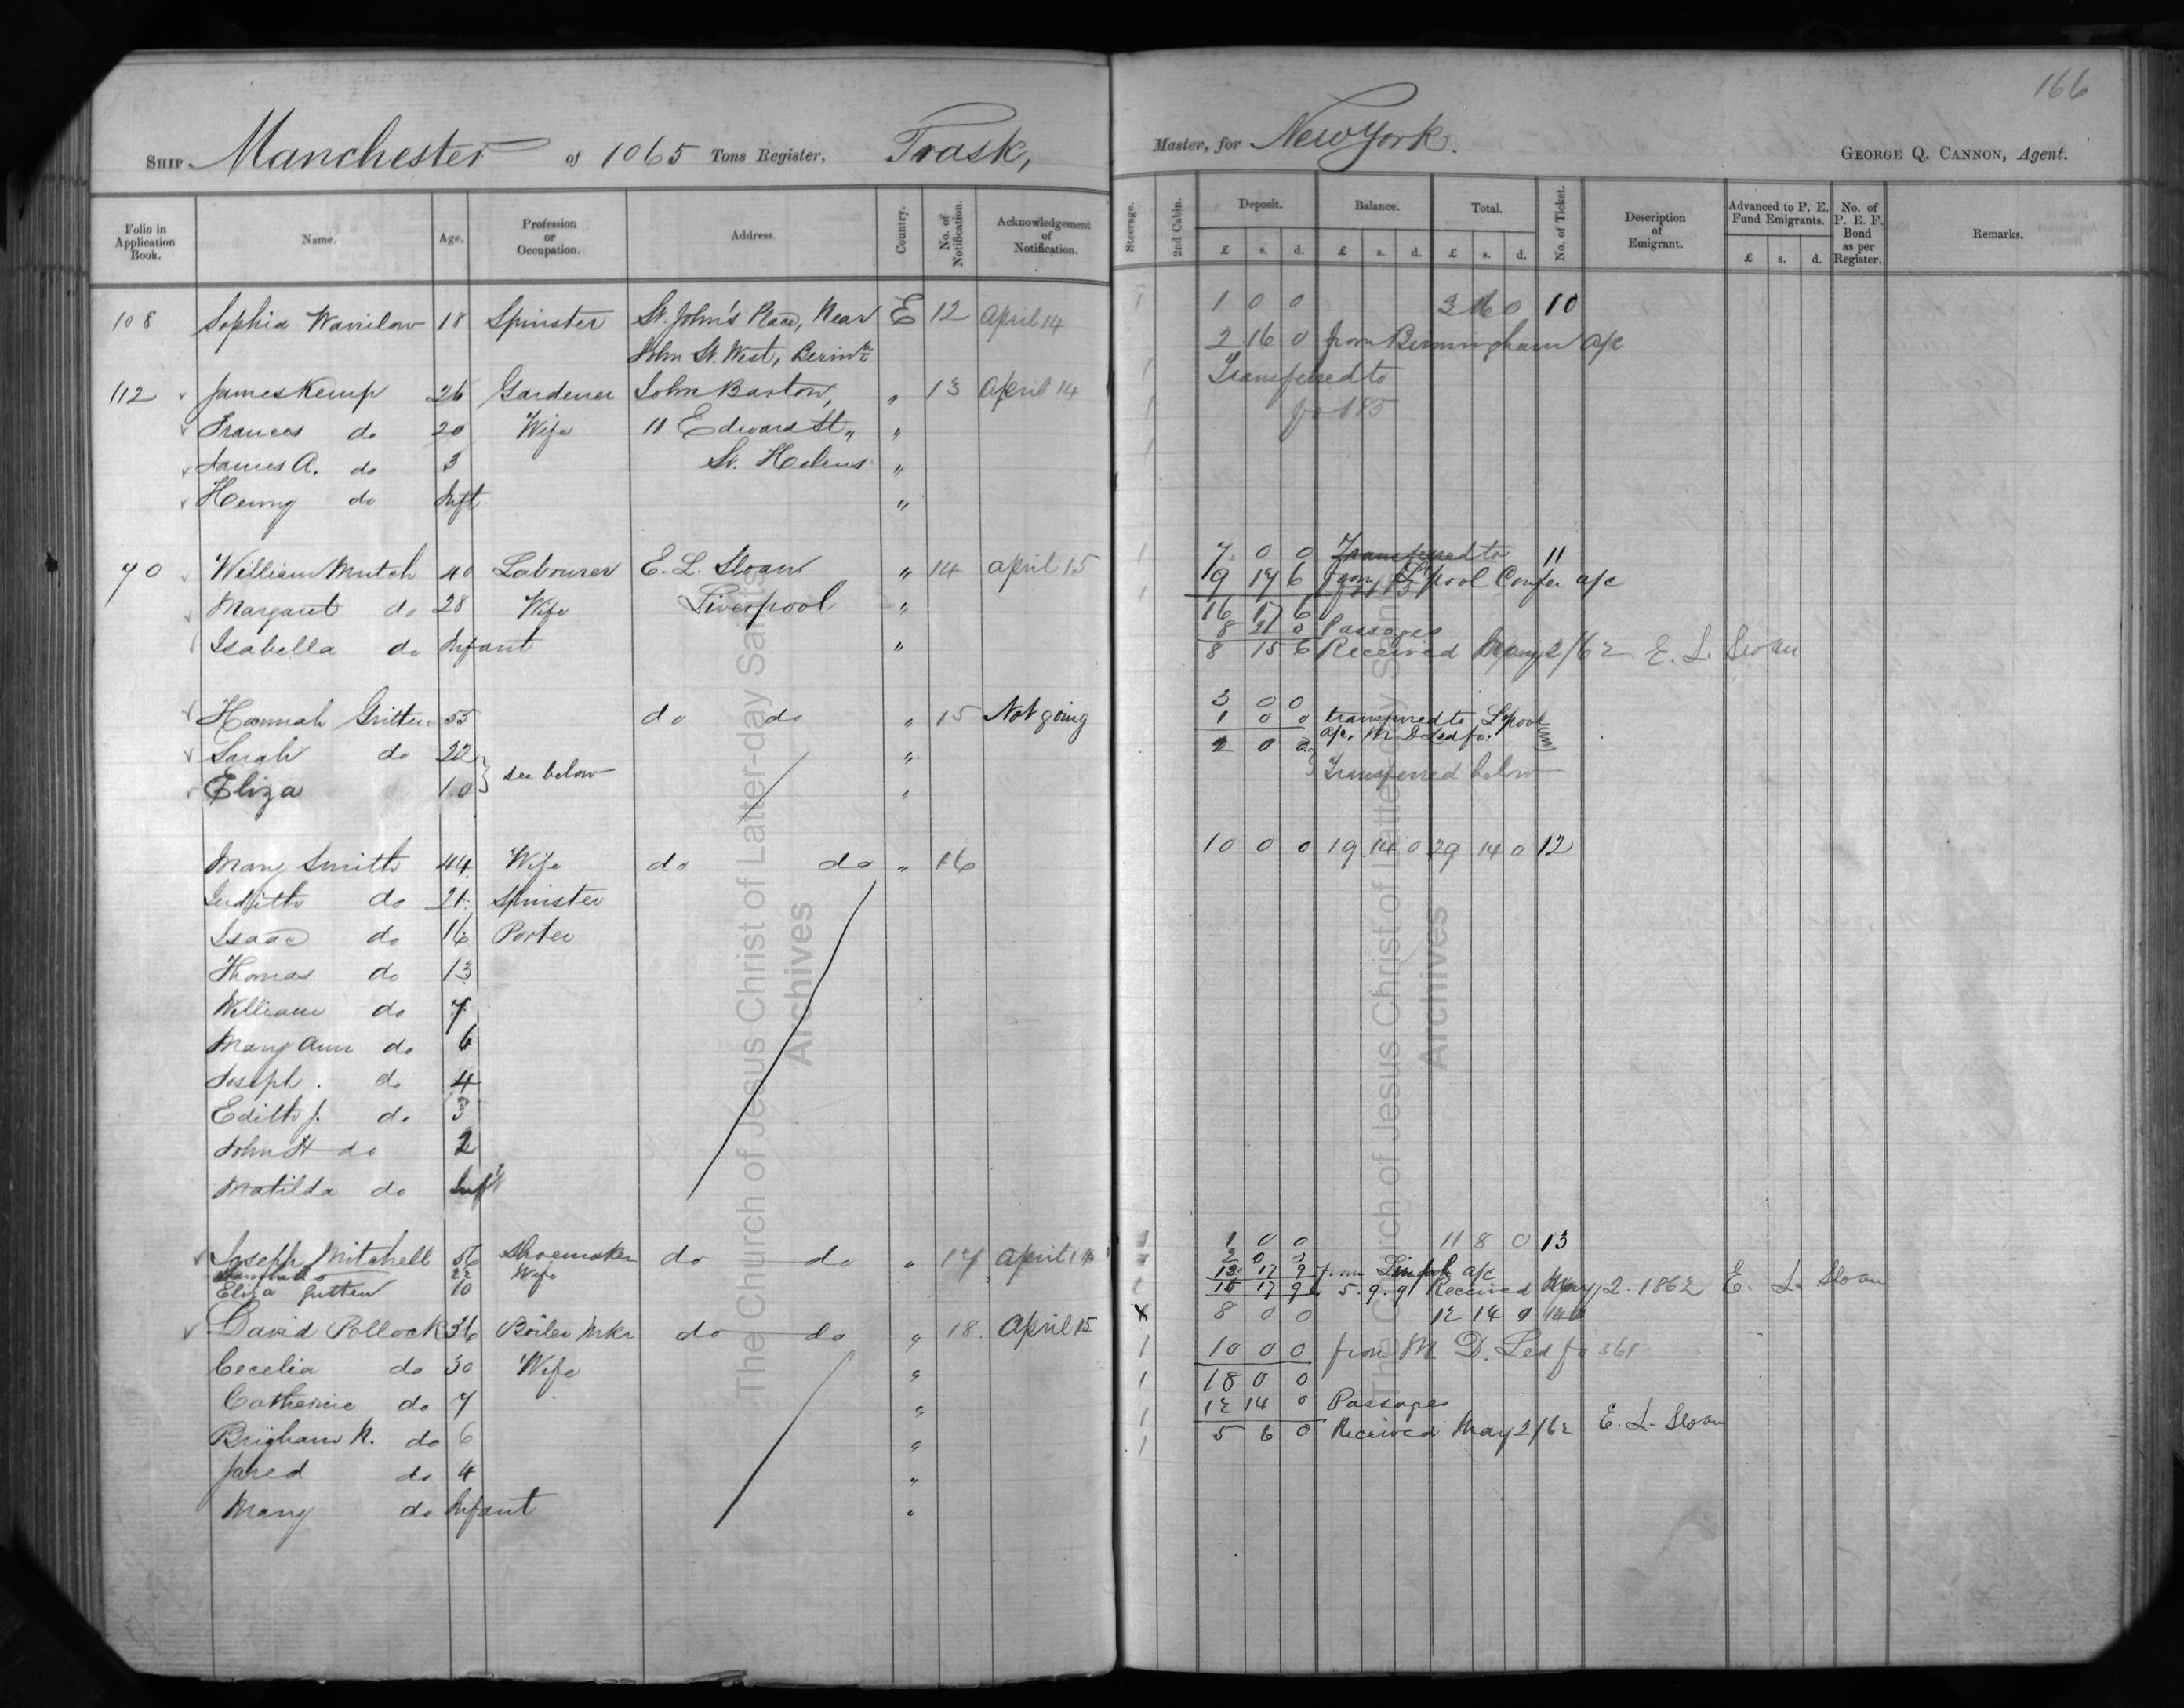 166
SHIP Manchester of 1065 Tons Register, Trask, Master, for New York.
GEORGE Q. CANNON, Agent.
Folio in Application Book. Name. Age. Profession or Occupation. Address. Country. No. of Notification. Acknowledgement of Notification. Steerage. 2nd Cabin. Deposit. Balance. Total. No. of Ticket. Description of Emigrant. Advanced to P. E. Fund Emigrants. No. of P. E. F. Bond as per Register. Remarks.
£ s. d. £ s. d. £ s. d. £ s. d.
108 Sophia 18 Spinster St. John's Place, Near E 12 April 14 1 1 0 0 3 16 0 10
John St. West, 2 16 0 from Birmingham a/c
112 James Kemp 26 Gardener John Barton, " 13 April 14 1 Transferred to
Frances do 20 Wife 11 Edward St., " 1
James A. do 3 St. Helens. " 1
Henry do Inft "
70 William Mutch 40 Labourer E. L. Sloan " 14 April 15 1 7 0 0 Transferred to 11
9 17 6 from L'pool Confer a/c
Margaret do 28 Wife Liverpool " 1 16 17 6
8 2 0 Passages
Isabella do Infant " 8 15 6 Received May 2/62 E. L. Sloan
Hannah Gritten 55 do do " 15 Not going 3 0 0
1 0 0 transferred to L'pool
a/c, M. D. Led fo:
Sarah do 22 " 2 0 0
see below
Eliza 10 " Transferred below
Mary Smith 44 Wife do do " 16 10 0 0 19 14 0 29 14 0 12
Judith do 21 Spinster
Isaac do 16 Porter
Thomas do 13
William do 7
Mary Ann do 6
Joseph. do 4
Edith J. do 3
John H do 2
Matilda do Inft
Joseph Mitchell 56 Shoemaker do do " 17 April 1 1 0 0 11 8 0 13
22 Wife 2 0 0
13 17 9 from a/c
Eliza Gritten 10 1 17 9 5.9.9 Received May 2. 1862 E. L. Sloan
David Pollock 36 Boiler Mkr do do " 18. April 15 X 8 0 0 12 14 0 14
Cecelia do 30 Wife " 1 10 0 0 from M. D. Led fo 361
Catherine do 7 " 1 18 0 0
12 14 0 Passages
Brigham N. do 6 " 1 5 6 0 Received May 2/62 E. L. Sloan
Jared do 4 " 1
Mary do Infant "
The Church of Jesus Christ of Latter-day Saints
Archives
The Church of Jesus Christ of Latter-day Saints
Archives